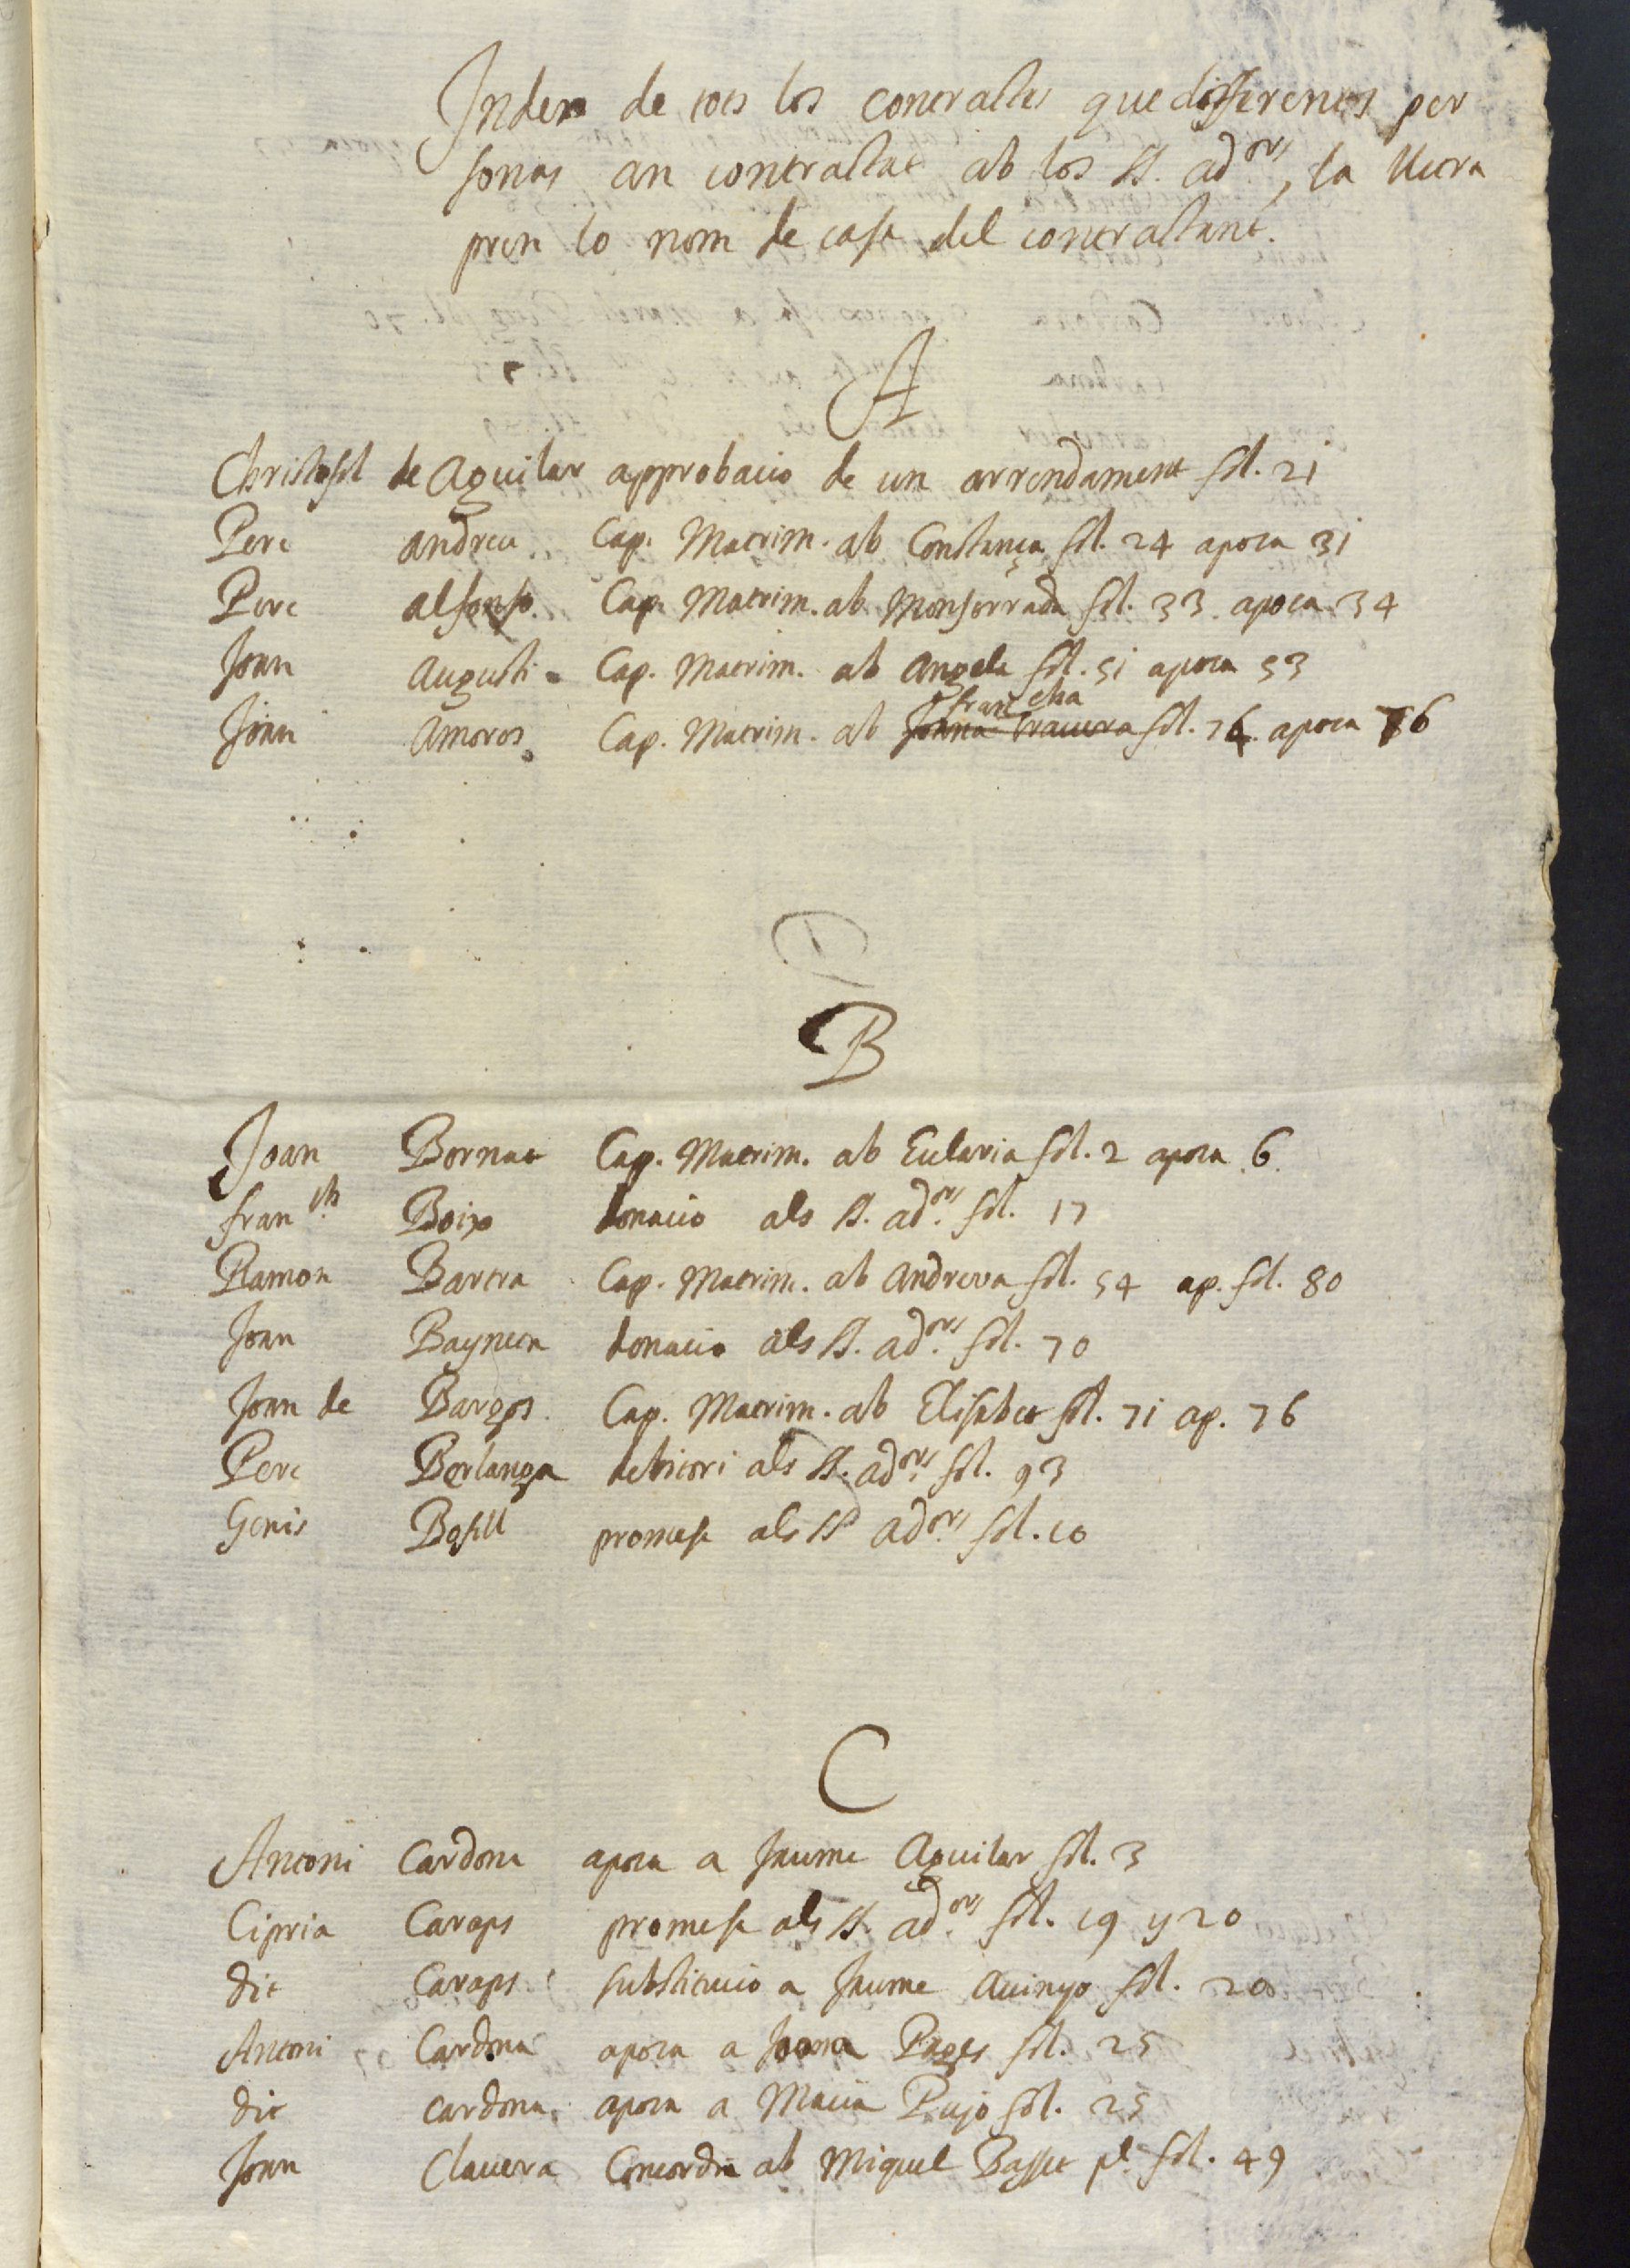 Index de tots los contractes que differents per
sonas an contractat ab los SS. ador.s, la lletra
pren lo nom de casa del contractant.
A
Christofol de Aguilar approbacio de un arrendament fol. 21
Pere Andreu Cap. Matrim. ab Constança fol. 24 apoca 31
Pere Alfonso Cap. Matrim. ab Monserrada fol. 33 apoca 34
Joan Augusti Cap. Matrim. ab Angela fol. 51 apoca 53
Joan Amoros Cap. Matrim. ab Joana Travera francha fol. 76 apoca 86
B
Joan Bornat Cap. Matrim. ab Eularia fol. 2 apoca 6
franch Boix donacio als SS. ador.s fol. 17
Ramon Bartra Cap. Matrim. ab Andreva fol. 54 ap. fol. 80
Joan donacio als SS. ador.s fol. 70
Joan de Barges Cap. Matrim. ab Elisabet fol. 71 ap. 76
Pere Berlanga debitori als SS. ador.s fol. 93
Genis Bosill promesa als SS ador.s fol. 10
C
Antoni Cardona apoca a Jaume Aguilar fol. 3
Cipria Caraps promesa als SS. ador.s fol. 19 y 20
dit Caraps substitucio a Jaume Avinyo fol. 20
Antoni Cardona apoca a Joana Pages fol. 25
dit cardona apoca a Macia Pujo fol. 25
Joan Clavera Concordia ab Miquel Basset pl. fol. 49